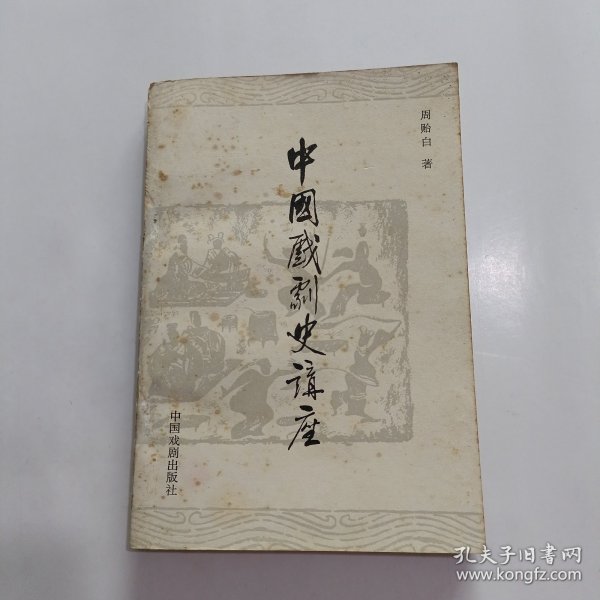 周贻白 著
中國戲劇史講座
中国戏剧出版社
孔夫子旧书网
www.kongfz.com